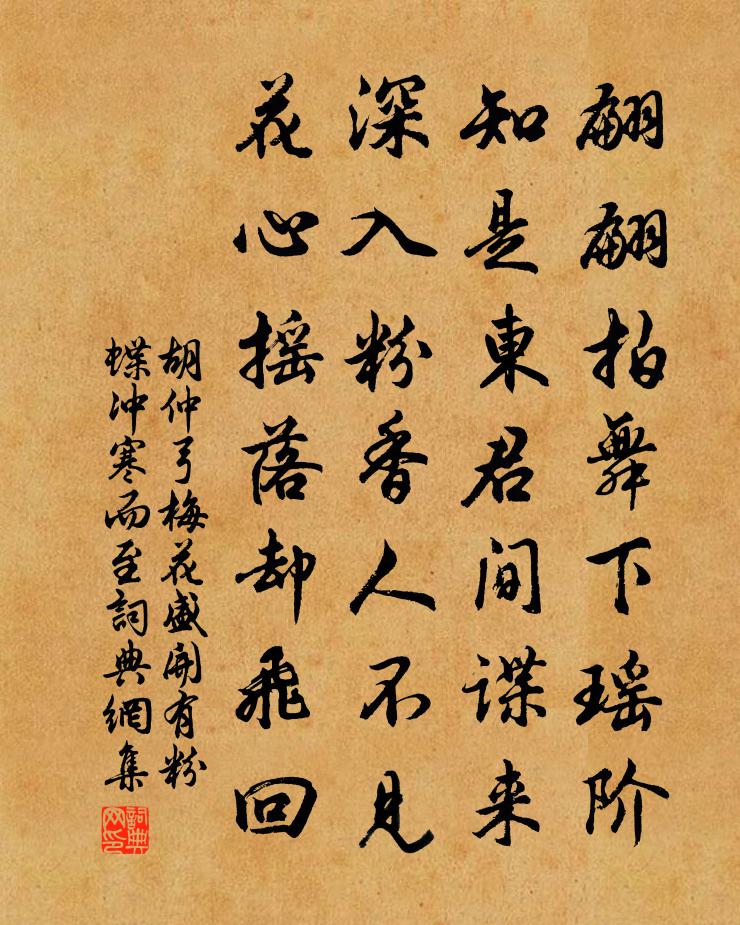 翩翩拍舞下瑶阶
知是東君间谍来
深入粉香人不见
花心摇落却飛回
胡仲弓梅花盛開有粉
蝶冲寒而至詞典網集
詞典
网印